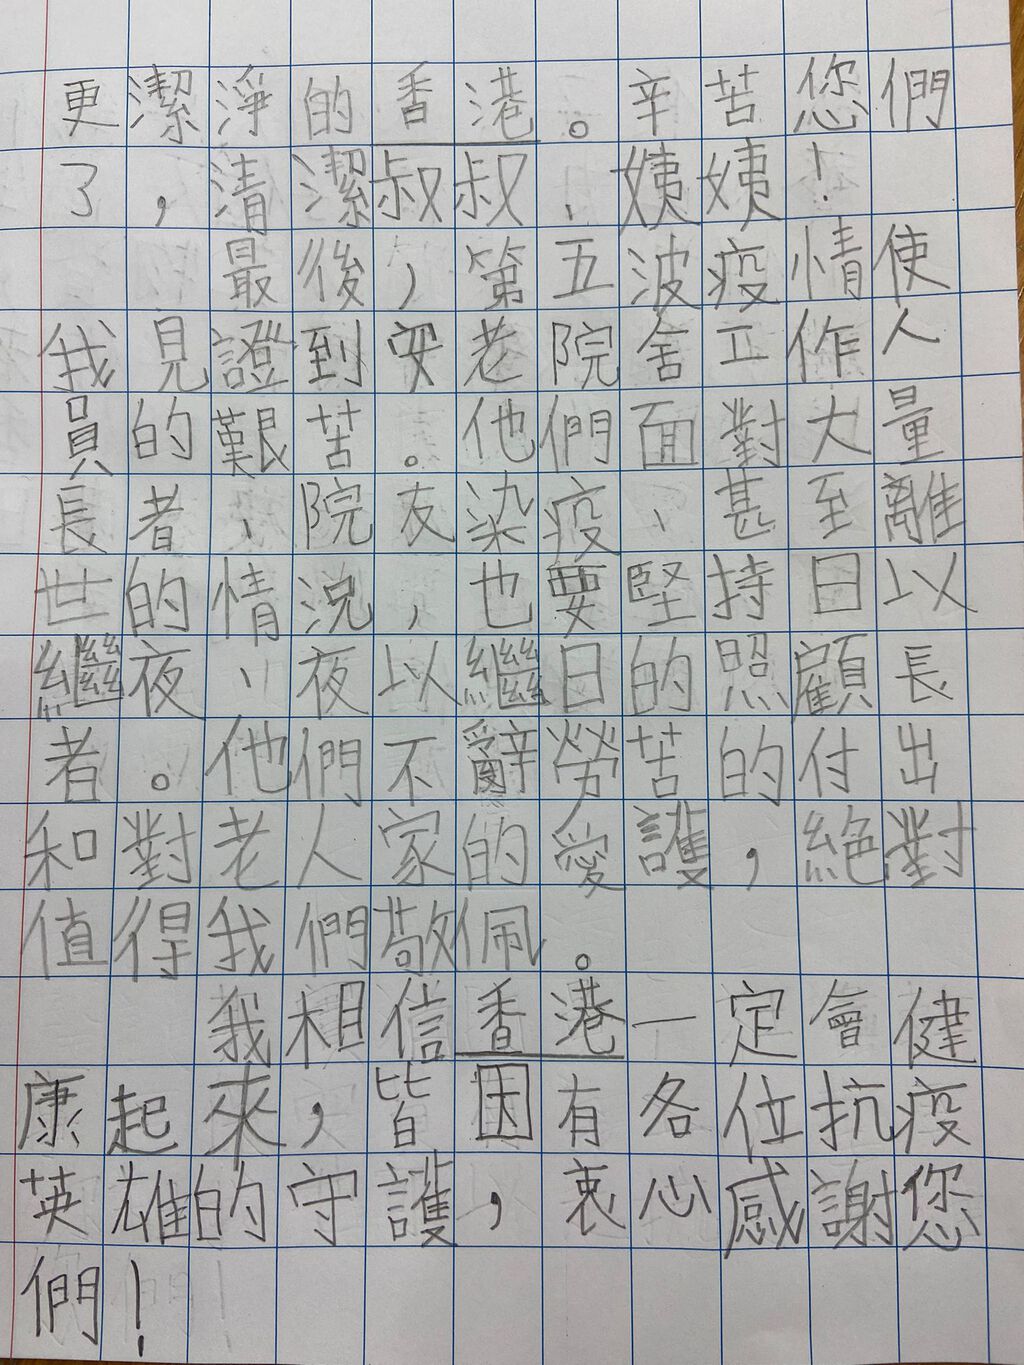 更潔淨的香港。辛苦您們
了，清潔叔叔、姨姨！
最後，第五波疫情使
我見證到安老院舍工作人
員的艱苦。他們面對大量
長者、院友染疫、甚至離
世的情況，也要堅持日以
繼夜、夜以繼日的照顧長
者。他們不辭勞苦的付出
和對老人家的愛護，絕對
值得我們敬佩。
我相信香港一定會健
康起來，皆因有各位抗疫
英雄的守護，衷心感謝您
們！